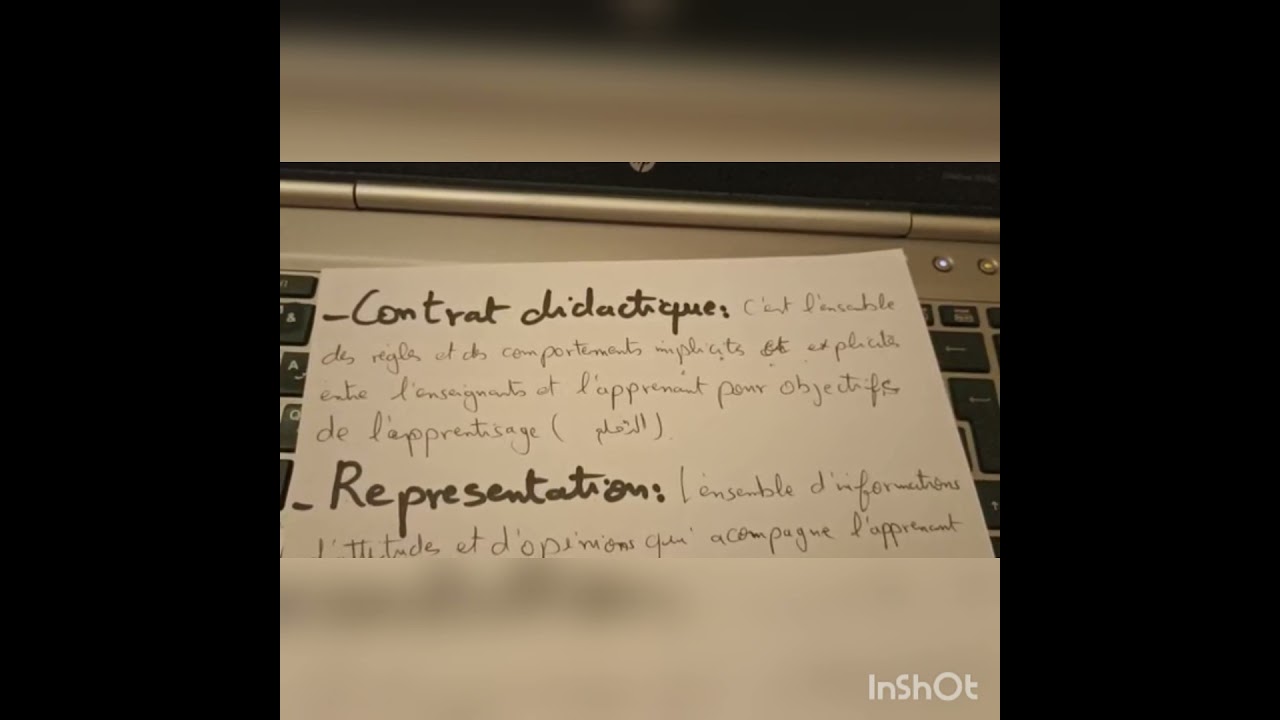 - Contrat didactique: C'est l'ensemble
des règles et des comportements implicits et explicités
entre l'enseignants et l'apprenant pour objectifs
de l'apprentisage ( التعلم ).
- Representation: l'ensemble d'informations
l'ttitudes et d'opinions qui acompagne l'apprenant
InShOt